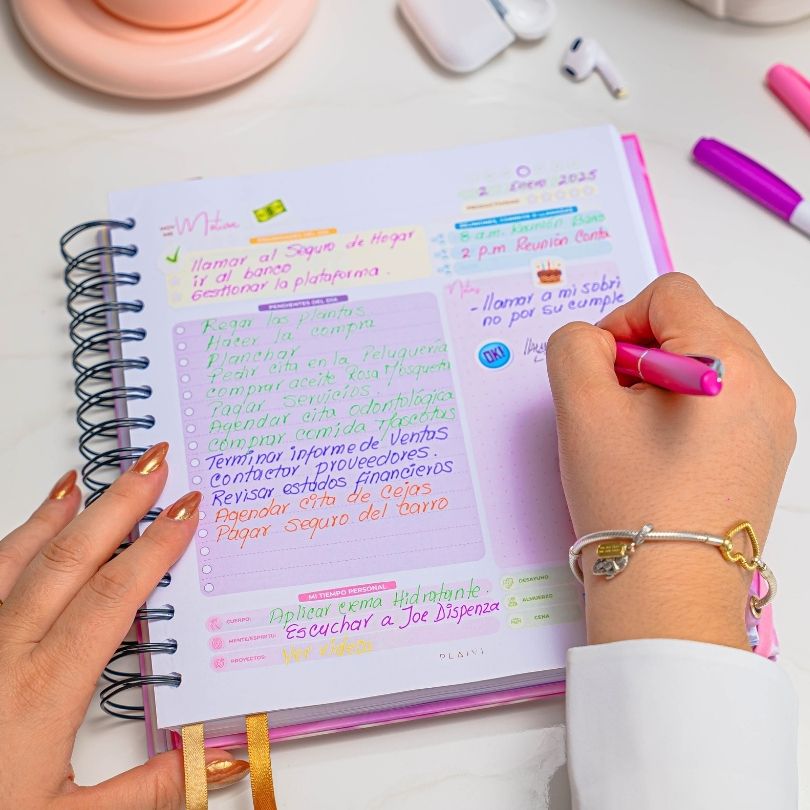 2 Enero 2025
Motion
llamar al Seguro de Hogar
ir al banco
Gestionar la plataforma.
REUNIONES, EVENTOS O LLAMADAS
8 a.m. Reunión
2 p.m Reunión Conta
PENDIENTES DEL DÍA
Regar las Plantas
Hacer la compra
Planchar
Pedir cita en la Peluquería
comprar aceite Rosa Mosqueta
Pagar Servicios.
Agendar cita odontológica
comprar comida Mascotas
Terminar informe de Ventas
contactar Proveedores.
Revisar estados financieros
Agendar cita de Cejas
Pagar seguro del carro
Notas
- llamar a mi sobri
no por su cumple
OK!
MI TIEMPO PERSONAL
CUERPO: Aplicar crema Hidratante.
MENTE/ESPÍRITU: Escuchar a Joe Dispenza
PROYECTOS: Ver videos
DESAYUNO
ALMUERZO
CENA
PLAIVI